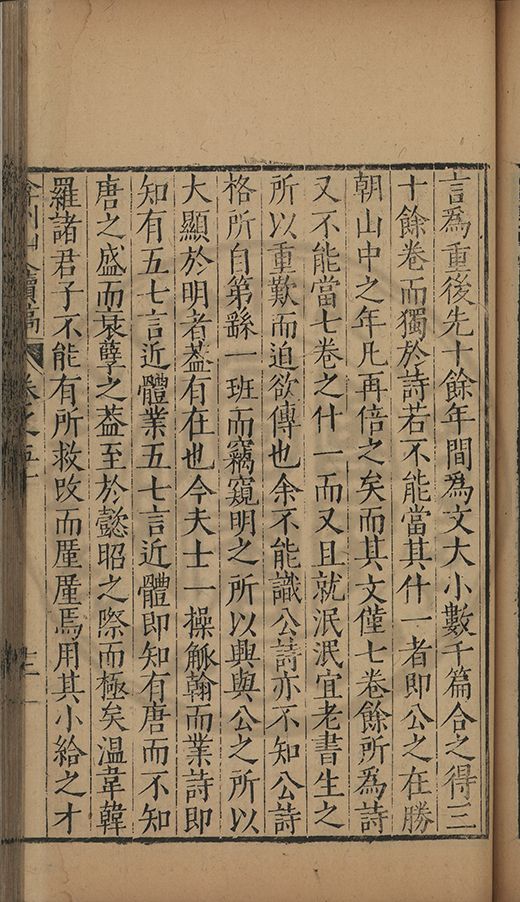 言爲重後先十餘年間爲文大小數千篇合之得三
十餘卷而獨於詩若不能當其什一者即公之在勝
朝山中之年凡再倍之矣而其文僅七卷餘所爲詩
又不能當七卷之什一而又且就泯泯宜老書生之
所以重歎而迫欲傳也余不能識公詩亦不知公詩
格所自第繇一班而竊窺明之所以興與公之所以
大顯於明者葢有在也今夫士一操觚翰而業詩即
知有五七言近體業五七言近體即知有唐而不知
唐之盛而衰孽之葢至於懿昭之際而極矣溫韋韓
羅諸君子不能有所救攺而厪厪焉用其小給之才
卷之五十